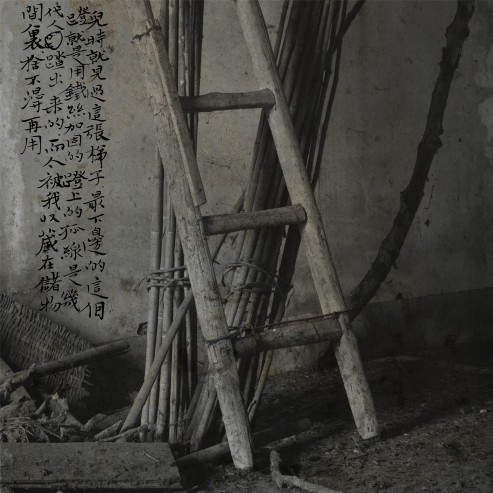 兒時就見過這張梯子最下邊的這個
蹬就是用鐵絲加固的蹬上的弧線是幾
代人踏出来的而今被我收藏在儲物
間裏捨不得再用